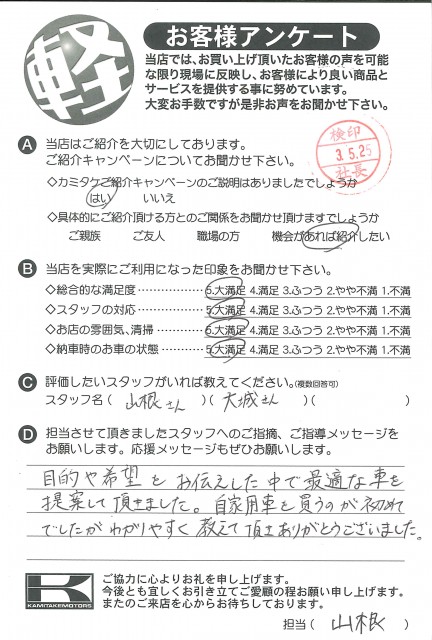 軽
お客様アンケート
当店では、お買い上げ頂いたお客様の声を可能
な限り現場に反映し、お客様により良い商品と
サービスを提供する事に努めています。
大変お手数ですが是非お声をお聞かせ下さい。
検印
3.5.25
社長
A 当店はご紹介を大切にしております。
ご紹介キャンペーンについてお聞かせ下さい。
◇カミタケご紹介キャンペーンのご説明はありましたでしょうか
はい いいえ
◇具体的にご紹介頂ける方とのご関係をお聞かせ頂けますでしょうか
ご親族 ご友人 職場の方 機会があれば紹介したい
B 当店を実際にご利用になった印象をお聞かせ下さい。
◇総合的な満足度……………5.大満足 4.満足 3.ふつう 2.やや不満 1.不満
◇スタッフの対応……………5.大満足 4.満足 3.ふつう 2.やや不満 1.不満
◇お店の雰囲気、清掃………5.大満足 4.満足 3.ふつう 2.やや不満 1.不満
◇納車時のお車の状態………5.大満足 4.満足 3.ふつう 2.やや不満 1.不満
C 評価したいスタッフがいれば教えてください。(複数回答可)
スタッフ名( 山根さん )( 大城さん )( )
D 担当させて頂きましたスタッフへのご指摘、ご指導メッセージを
お願いします。応援メッセージもぜひお願いします。
目的や希望をお伝えした中で最適な車を
提案して頂きました。自家用車を買うのが初めて
でしたがわかりやすく教えて頂きありがとうございました。
K
KAMITAKEMOTORS
ご協力に心よりお礼を申し上げます。
今後とも宜しくお引き立てご愛顧の程お願い申し上げます。
またのご来店を心からお待ちしております。
担当( 山根 )